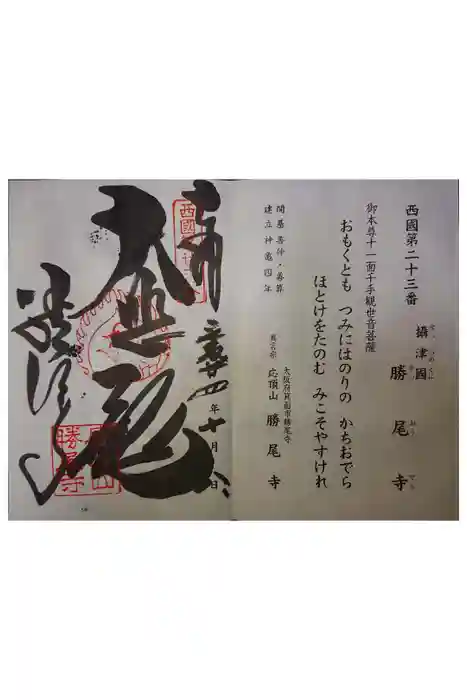 西國第二十三番
攝津國 勝尾寺
せっつのくに かつおうでら
御本尊十一面千手観世音菩薩
おもくとも つみにはのりの かちおでら
ほとけをたのむ みこそやすけれ
開基善仲・善算
建立神亀四年
大阪府箕面市勝尾寺
真言宗 応頂山 勝尾寺
奉
年十月 日
大悲殿
勝尾寺
勝尾寺